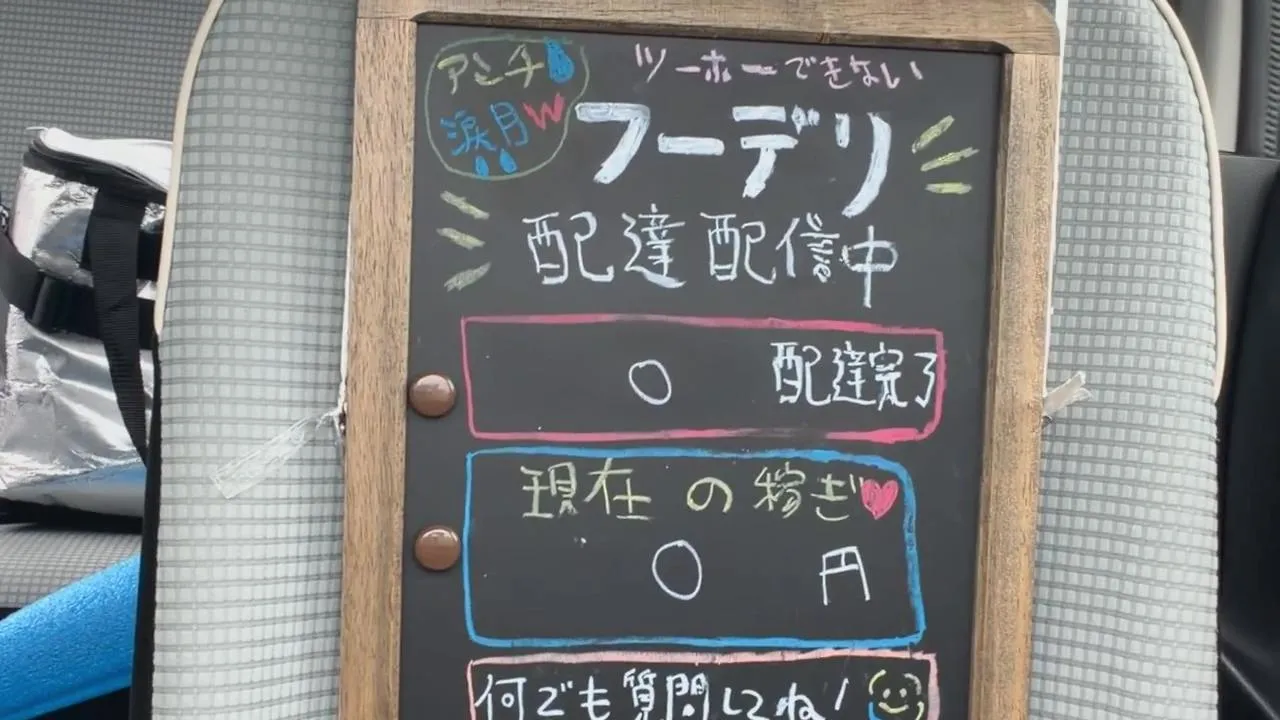 アンチ
涙月w
ツーホーできない
フーデリ
配達配信中
0 配達完了
現在の稼ぎ
0 円
何でも質問してね!